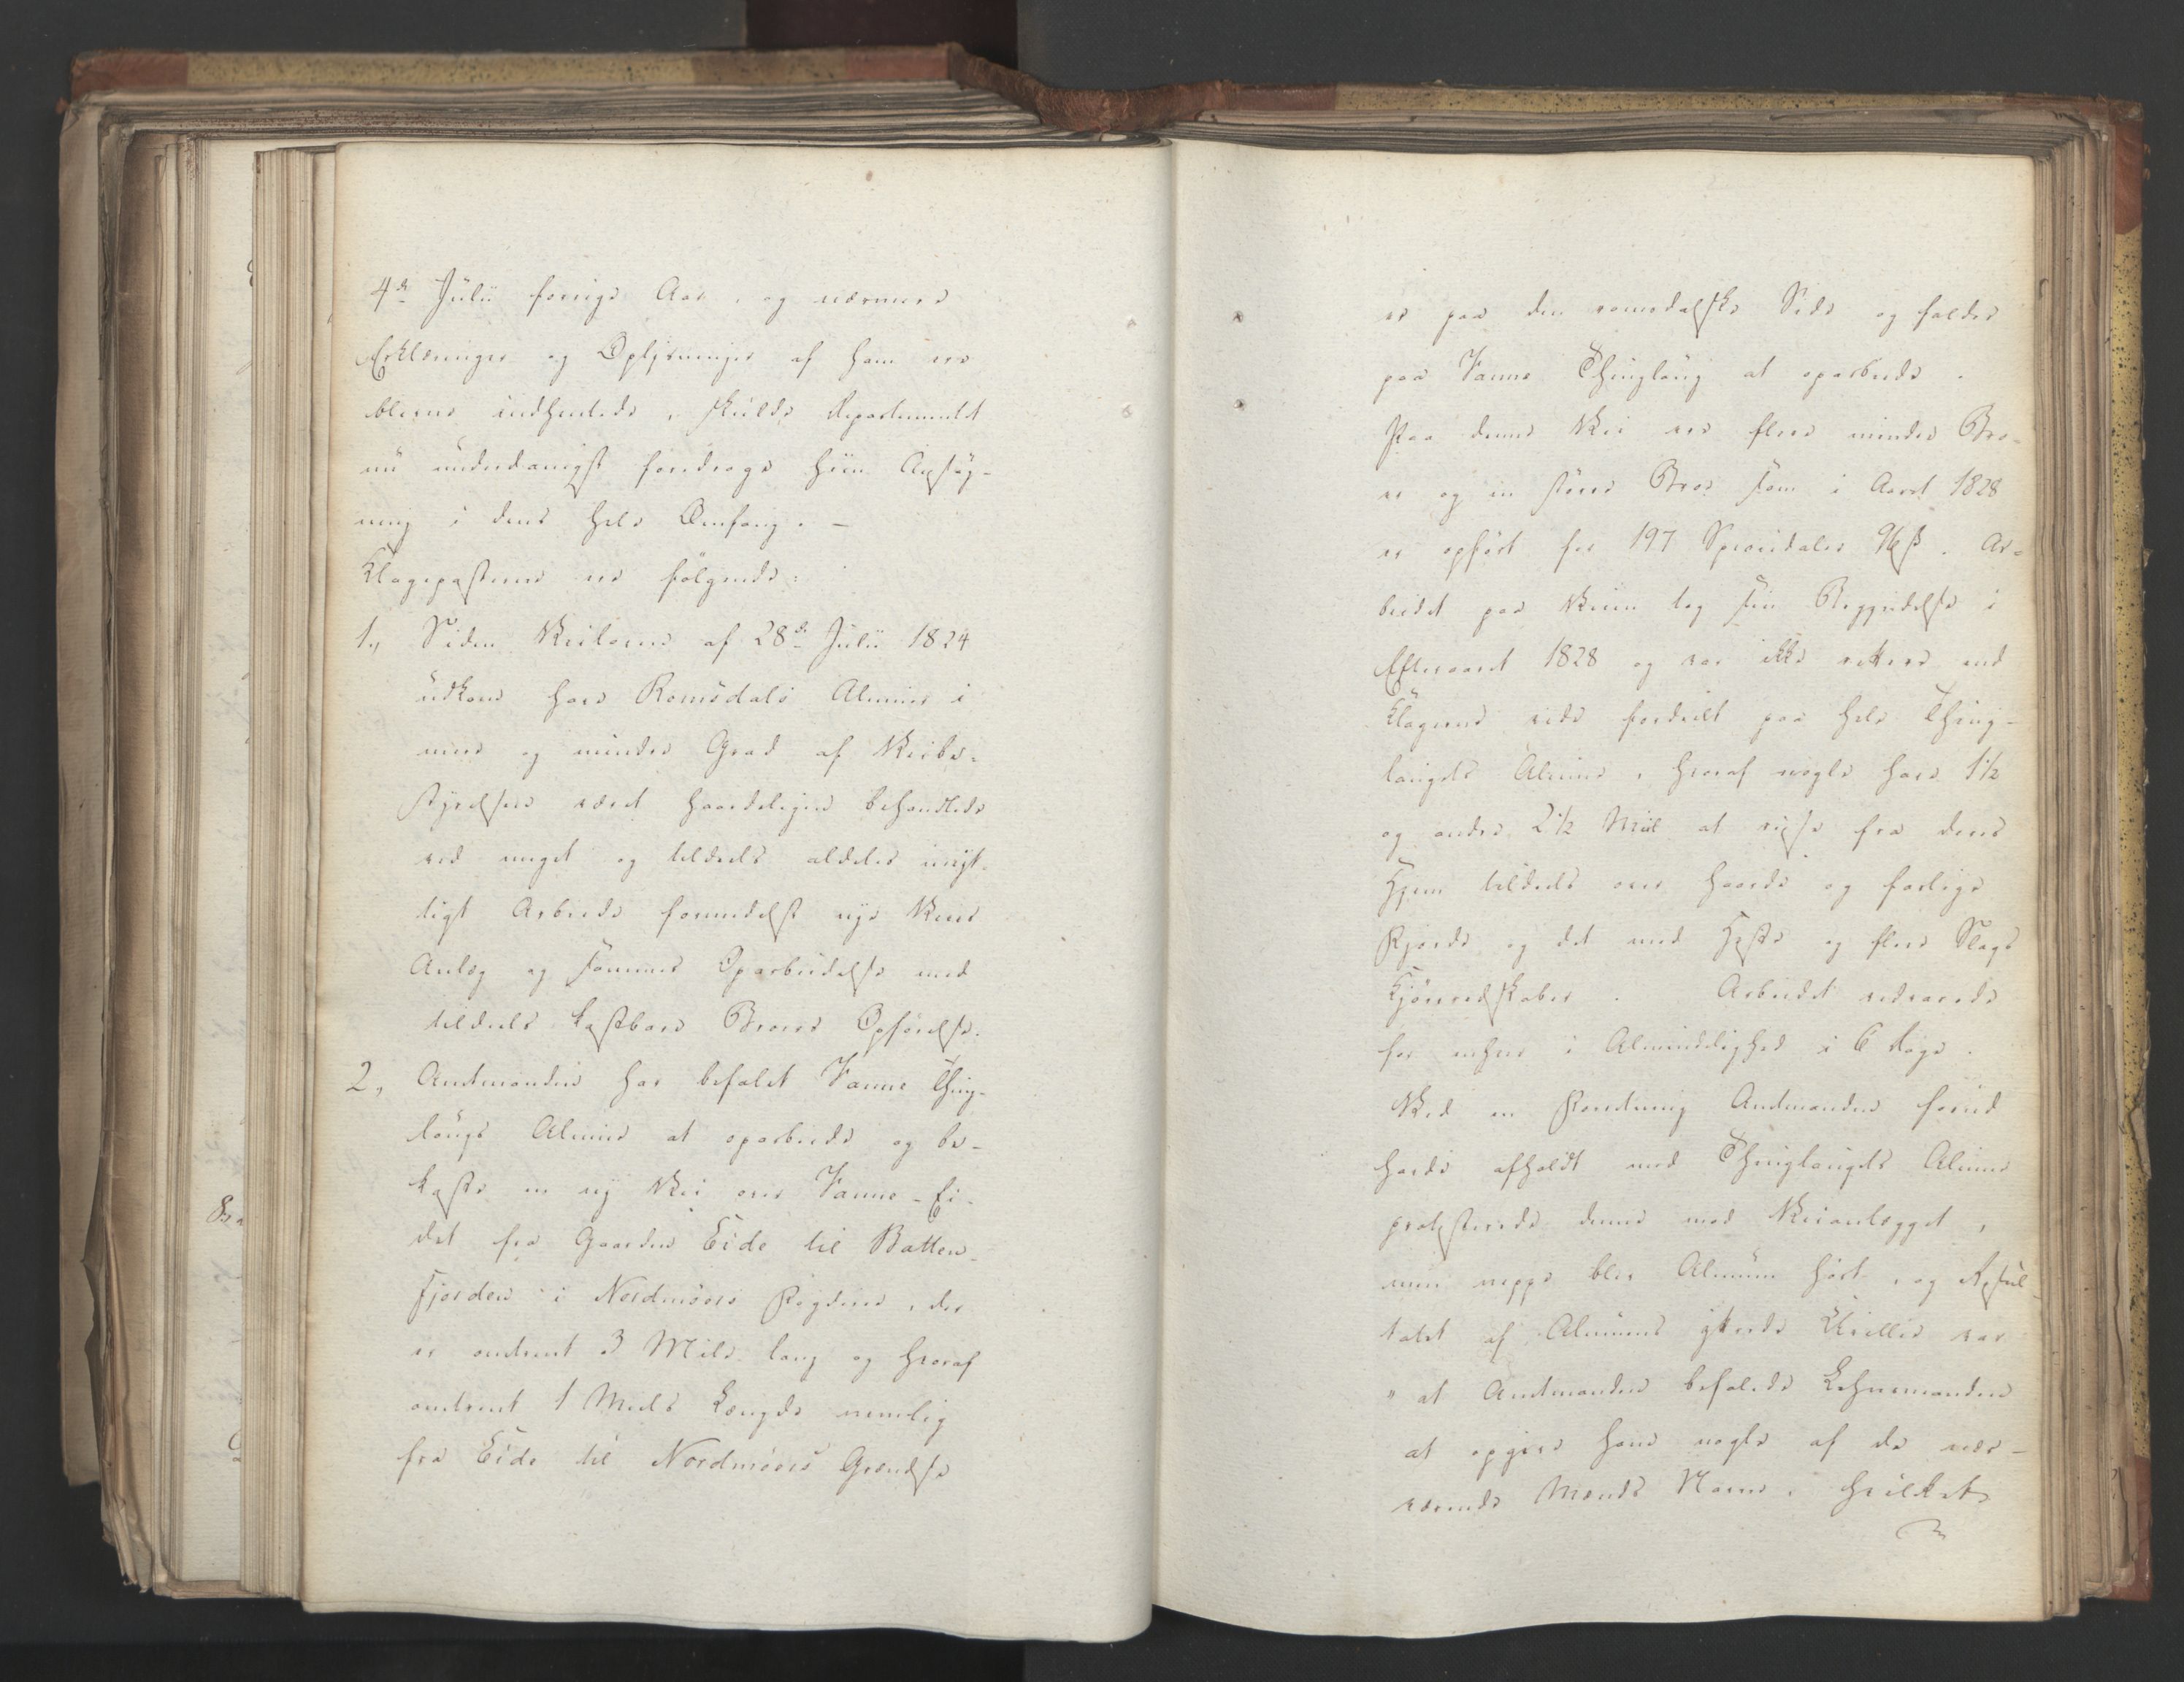 4de Julii forrige Aar, og nærmere
Erklæringer og Oplysninger af ham ere
blevne indhentede, skulde Departementet
nu underdanigst foredrage hiin Ansøg-
ning i dens hele Omfang. –
Klageposterne ere følgende:
1., Siden Veiloven af 28de Julii 1824
udkom have Romsdals Almuer i
meer og mindre Grad af Veibe-
styrelsen været haardeligen behandlede
ved meget og tildeels aldeles unyt-
tigt Arbeide formedelst nye Veies
Anlæg og sammes Oparbeidelse med
tildeels kostbare Broers Opførelse.
2, Amtmanden har befalet Vanne Thing-
laugs Almue at oparbeide og be-
koste en ny Vei over Vanne-Ei-
det fra Gaarden Eide til Batten-
Fjorden i Nordmøers Fogderie, der
er omtrent 3 Mile lang og hvoraf
omtrent 1 Miils Længde nemlig
fra Eide til Nordmøers Grændse
er paa den romsdalske Side og falder
paa Vanne Thinglaug at oparbeide.
Paa denne Vei ere flere mindre Bro-
er og en større Broe som i Aaret 1828
er opført for 197 Speciedaler 96 ß. Ar-
beidet paa Veien tog sin Begyndelse i
Efteraaret 1828 og var ikke rettere end
Klagerne vide fordeelt paa hele Thing-
laugets Almue, hvoraf nogle have 1½
og andre 2½ Miil at reise fra deres
Hjem tildeels over haarde og farlige
Fjorde og det med Heste og flere Slags
Kjøreredskaber. Arbeidet vedvarede
for enhver i Almindelighed i 6 Dage.
Ved en Forretning Amtmanden forud
havde afholdt med Thinglaugets Almue
protesterede denne mod Veianlægget,
men neppe blev Almuen hørt, og Resul-
tatet af Almuens yttrede Uvillie var
" at Amtmanden befalede Lehnsmanden
at opgive ham nogle af de nær-
værende Mænds Navne, hvilket